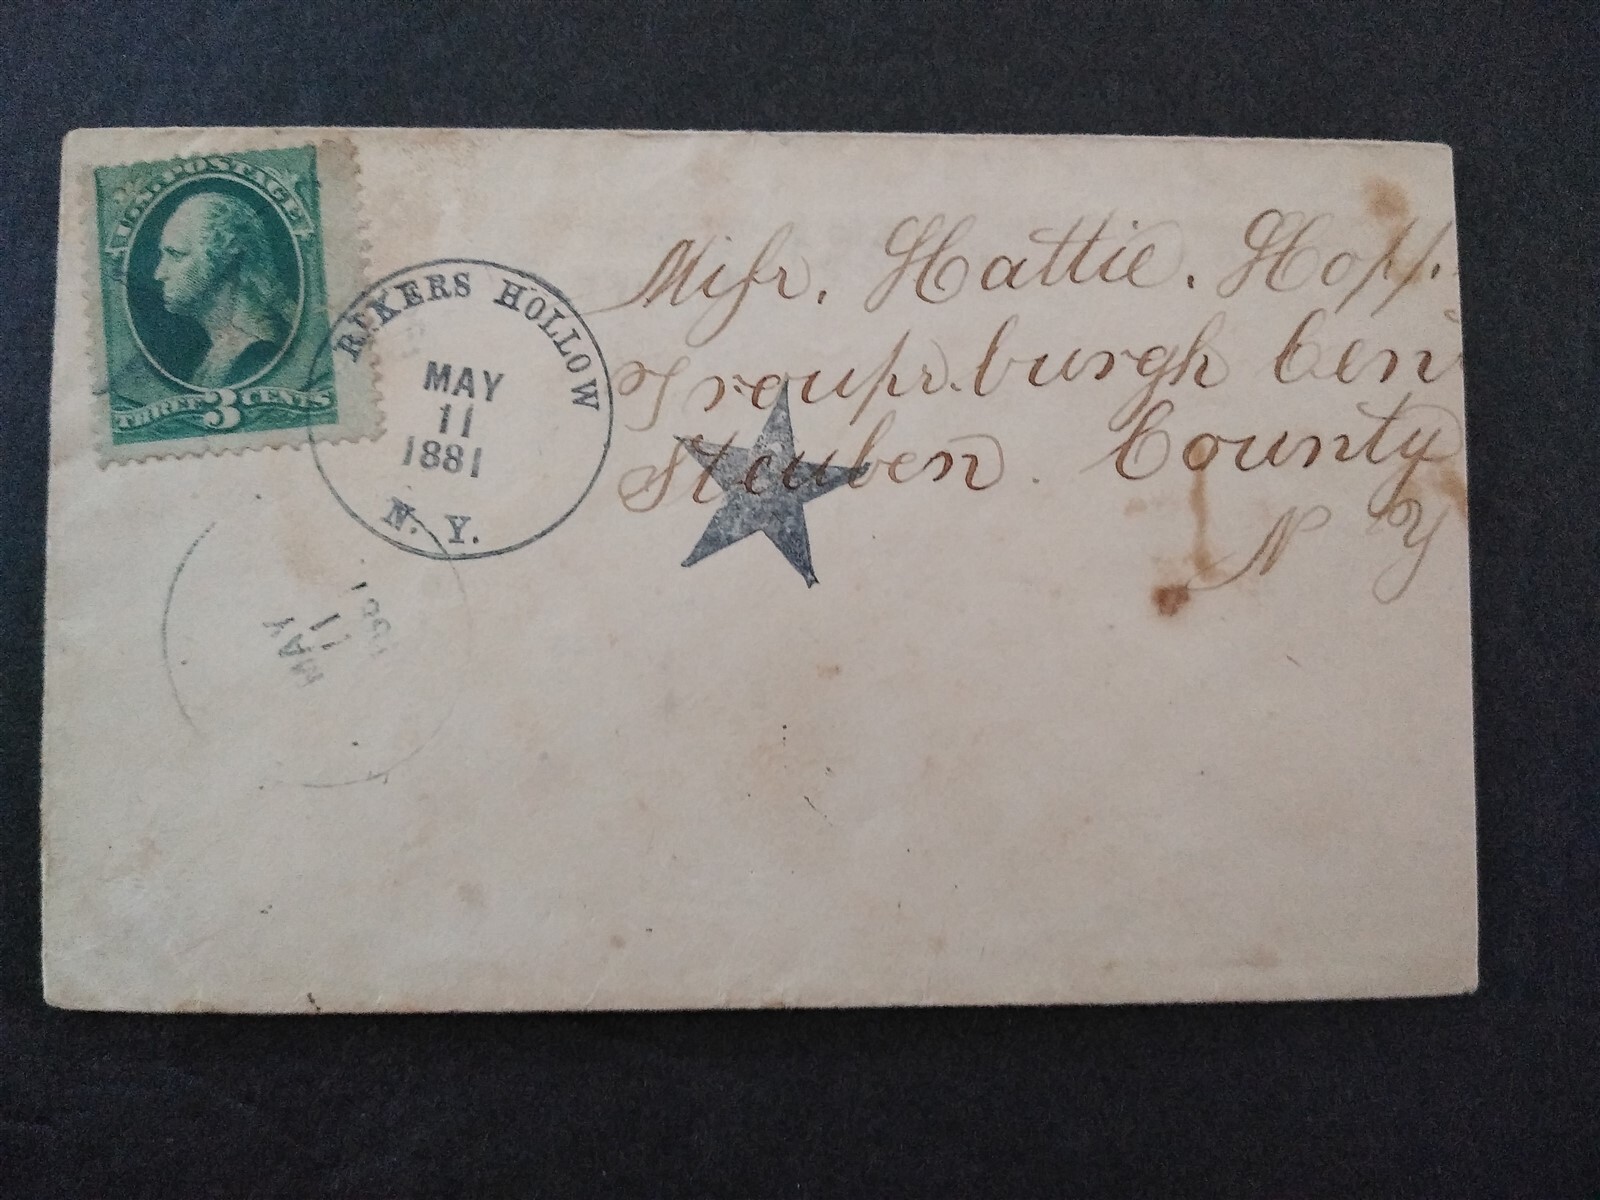 U.S. POSTAGE
THREE 3 CENTS
RIKERS HOLLOW
MAY
11
1881
N. Y.
Miss. Hattie. Hopp
Troupsburgh Cen
Steuben County
N Y
MAY
11
1881